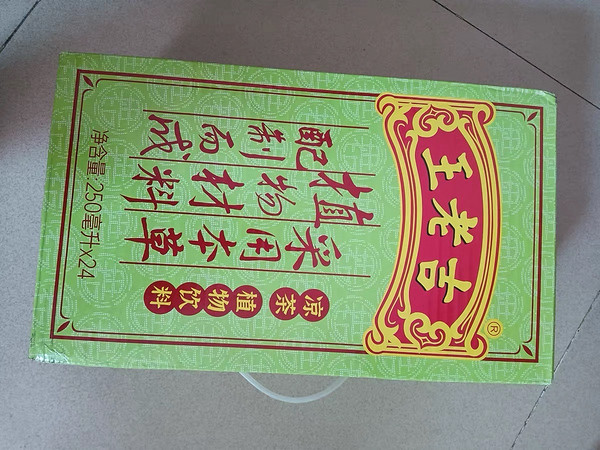 王老吉®
凉茶植物饮料
采用本草
植物材料
配制而成
净含量:250毫升x24